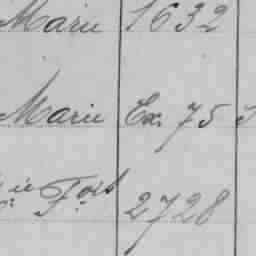 Marie 1632
Marie Ex. 75
ie Fort 2728